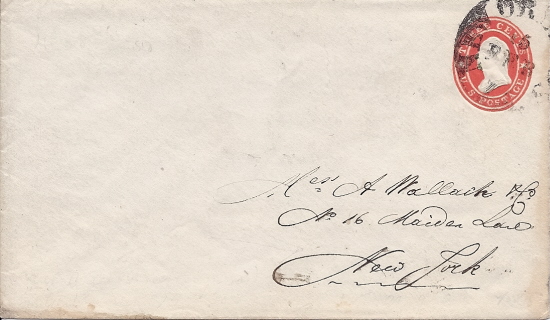 THREE CENTS
U.S. POSTAGE
Mess A Wallach & Co
No 16 Maiden Lane
New York